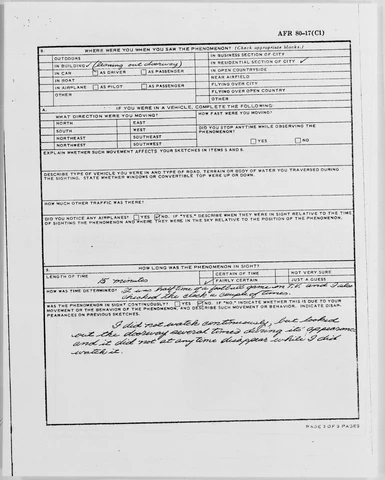 AFR 80-17(C1)
WHERE WERE YOU WHEN YOU SAW THE PHENOMENON? (Check appropriate blocks.)
OUTDOORS
IN BUSINESS SECTION OF CITY
IN BUILDING ✓ (Coming out doorway)
IN RESIDENTIAL SECTION OF CITY ✓
IN CAR AS DRIVER AS PASSENGER
IN OPEN COUNTRYSIDE
IN BOAT
NEAR AIRFIELD
IN AIRPLANE AS PILOT AS PASSENGER
FLYING OVER CITY
OTHER
FLYING OVER OPEN COUNTRY
OTHER
A. IF YOU WERE IN A VEHICLE, COMPLETE THE FOLLOWING:
WHAT DIRECTION WERE YOU MOVING?
HOW FAST WERE YOU MOVING?
NORTH EAST
SOUTH WEST
NORTHEAST SOUTHEAST
NORTHWEST SOUTHWEST
DID YOU STOP ANYTIME WHILE OBSERVING THE PHENOMENON?
YES NO
EXPLAIN WHETHER SUCH MOVEMENT AFFECTS YOUR SKETCHES IN ITEMS 5 AND 6.
DESCRIBE TYPE OF VEHICLE YOU WERE IN AND TYPE OF ROAD, TERRAIN OR BODY OF WATER YOU TRAVERSED DURING
THE SIGHTING. STATE WHETHER WINDOWS OR CONVERTIBLE TOP WERE UP OR DOWN.
HOW MUCH OTHER TRAFFIC WAS THERE?
DID YOU NOTICE ANY AIRPLANES? YES NO. IF "YES," DESCRIBE WHEN THEY WERE IN SIGHT RELATIVE TO THE TIME
OF SIGHTING THE PHENOMENON AND WHERE THEY WERE IN THE SKY RELATIVE TO THE POSITION OF THE PHENOMENON.
HOW LONG WAS THE PHENOMENON IN SIGHT?
LENGTH OF TIME
15 minutes
CERTAIN OF TIME
NOT VERY SURE
✓ FAIRLY CERTAIN
JUST A GUESS
HOW WAS TIME DETERMINED? It was half time of a football game on T.V. and I also
checked the clock a couple of times.
WAS THE PHENOMENON IN SIGHT CONTINUOUSLY? YES NO. IF "NO", INDICATE WHETHER THIS IS DUE TO YOUR
MOVEMENT OR THE BEHAVIOR OF THE PHENOMENON, AND DESCRIBE SUCH MOVEMENT OR BEHAVIOR. INDICATE DISAP-
PEARANCES ON PREVIOUS SKETCHES.
I did not watch continuously, but looked
out the doorway several times during its' appearance
and it did not at any time disappear while I did
watch it.
PAGE 3 OF 9 PAGES